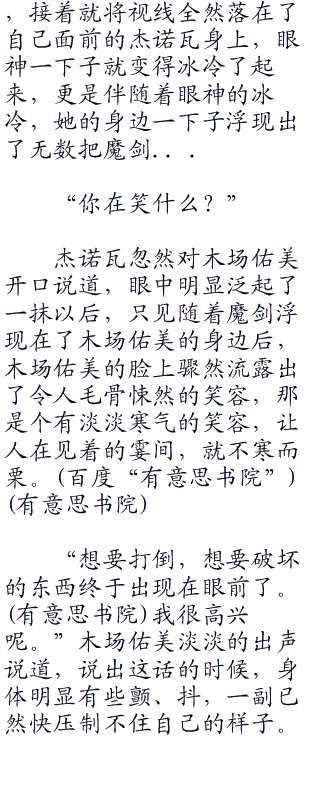 ，接着就将视线全然落在了
自己面前的杰诺瓦身上，眼
神一下子就变得冰冷了起
来，更是伴随着眼神的冰
冷，她的身边一下子浮现出
了无数把魔剑．．．
“你在笑什么？”
杰诺瓦忽然对木场佑美
开口说道，眼中明显泛起了
一抹以后，只见随着魔剑浮
现在了木场佑美的身边后，
木场佑美的脸上骤然流露出
了令人毛骨悚然的笑容，那
是个有淡淡寒气的笑容，让
人在见着的霎间，就不寒而
栗。(百度“有意思书院”)
(有意思书院)
“想要打倒，想要破坏
的东西终于出现在眼前了。
(有意思书院)我很高兴
呢。”木场佑美淡淡的出声
说道，说出这话的时候，身
体明显有些颤、抖，一副已
然快压制不住自己的样子。